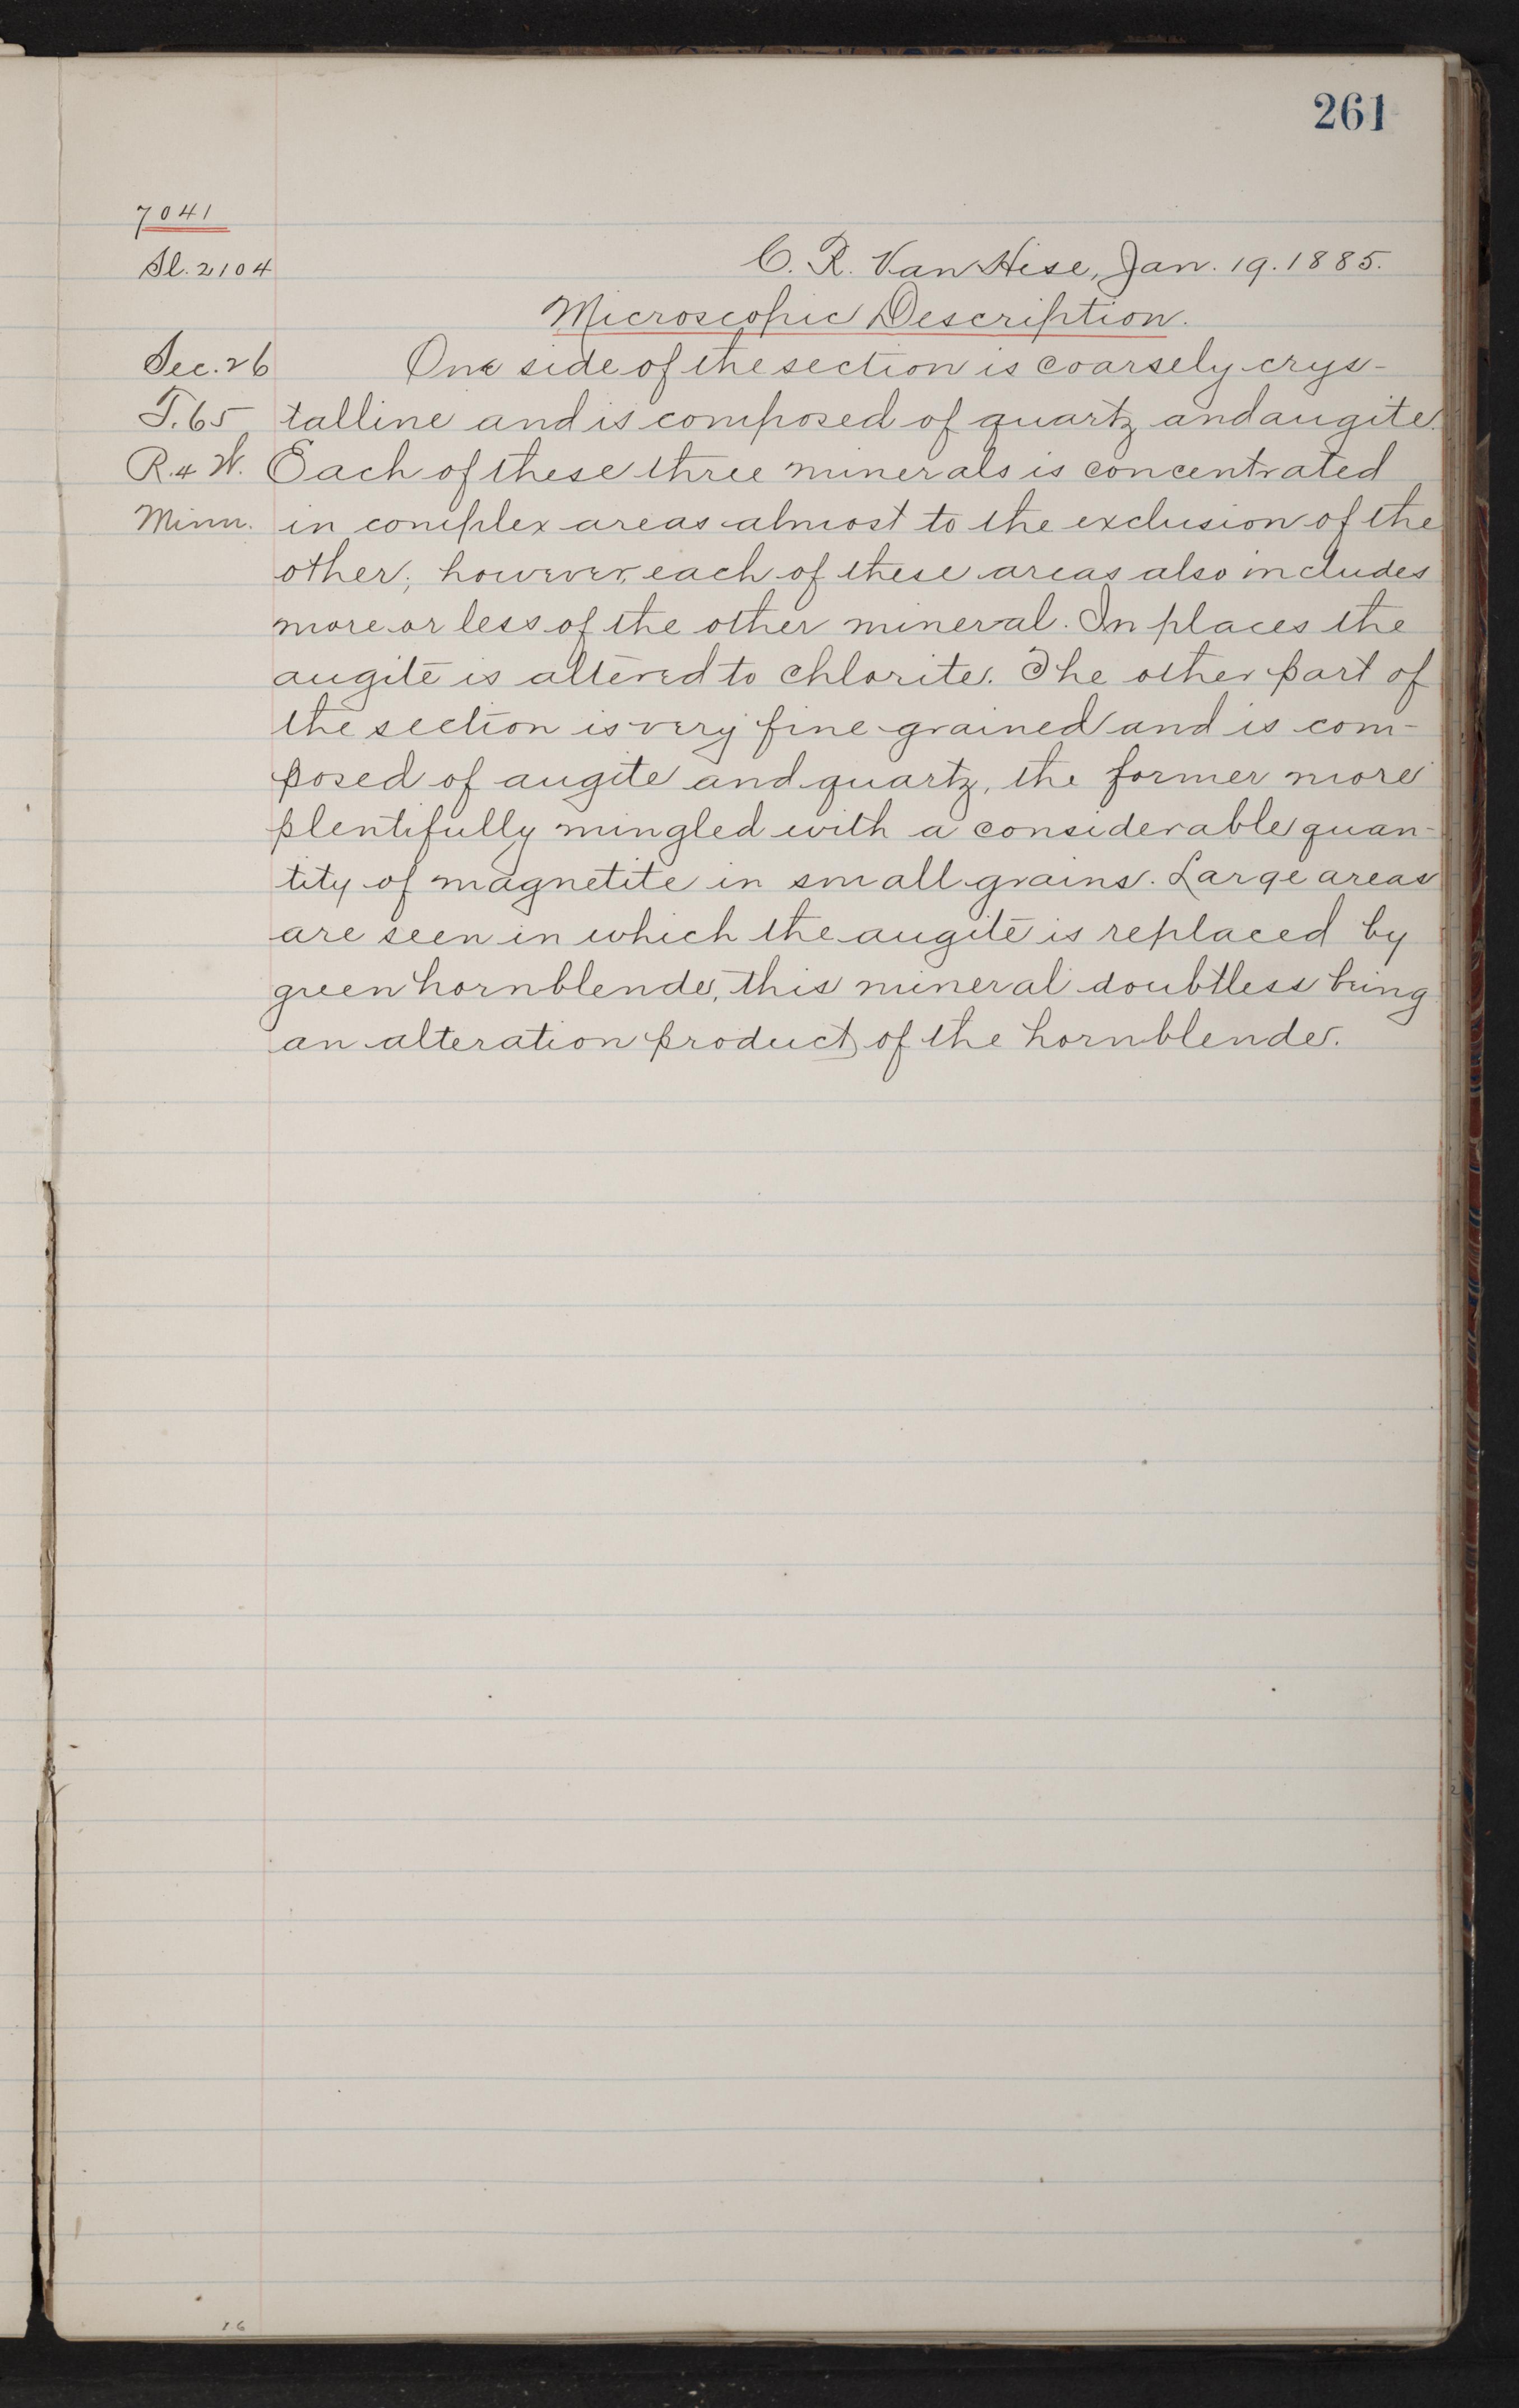 261
7041
Sl. 2104
C. R. Van Hise, Jan. 19. 1885.
Microscopic Description.
Sec. 26 One side of the section is coarsely crys-
T. 65 talline and is composed of quartz and augite.
R. 4 W. Each of these three minerals is concentrated
Minn. in complex areas almost to the exclusion of the
other; however, each of these areas also includes
more or less of the other mineral. In places the
augite is altered to chlorite. The other part of
the section is very fine grained and is com-
posed of augite and quartz, the former more
plentifully mingled with a considerable quan-
tity of magnetite in small grains. Large areas
are seen in which the augite is replaced by
green hornblende, this mineral doubtless being
an alteration product of the hornblende.
16